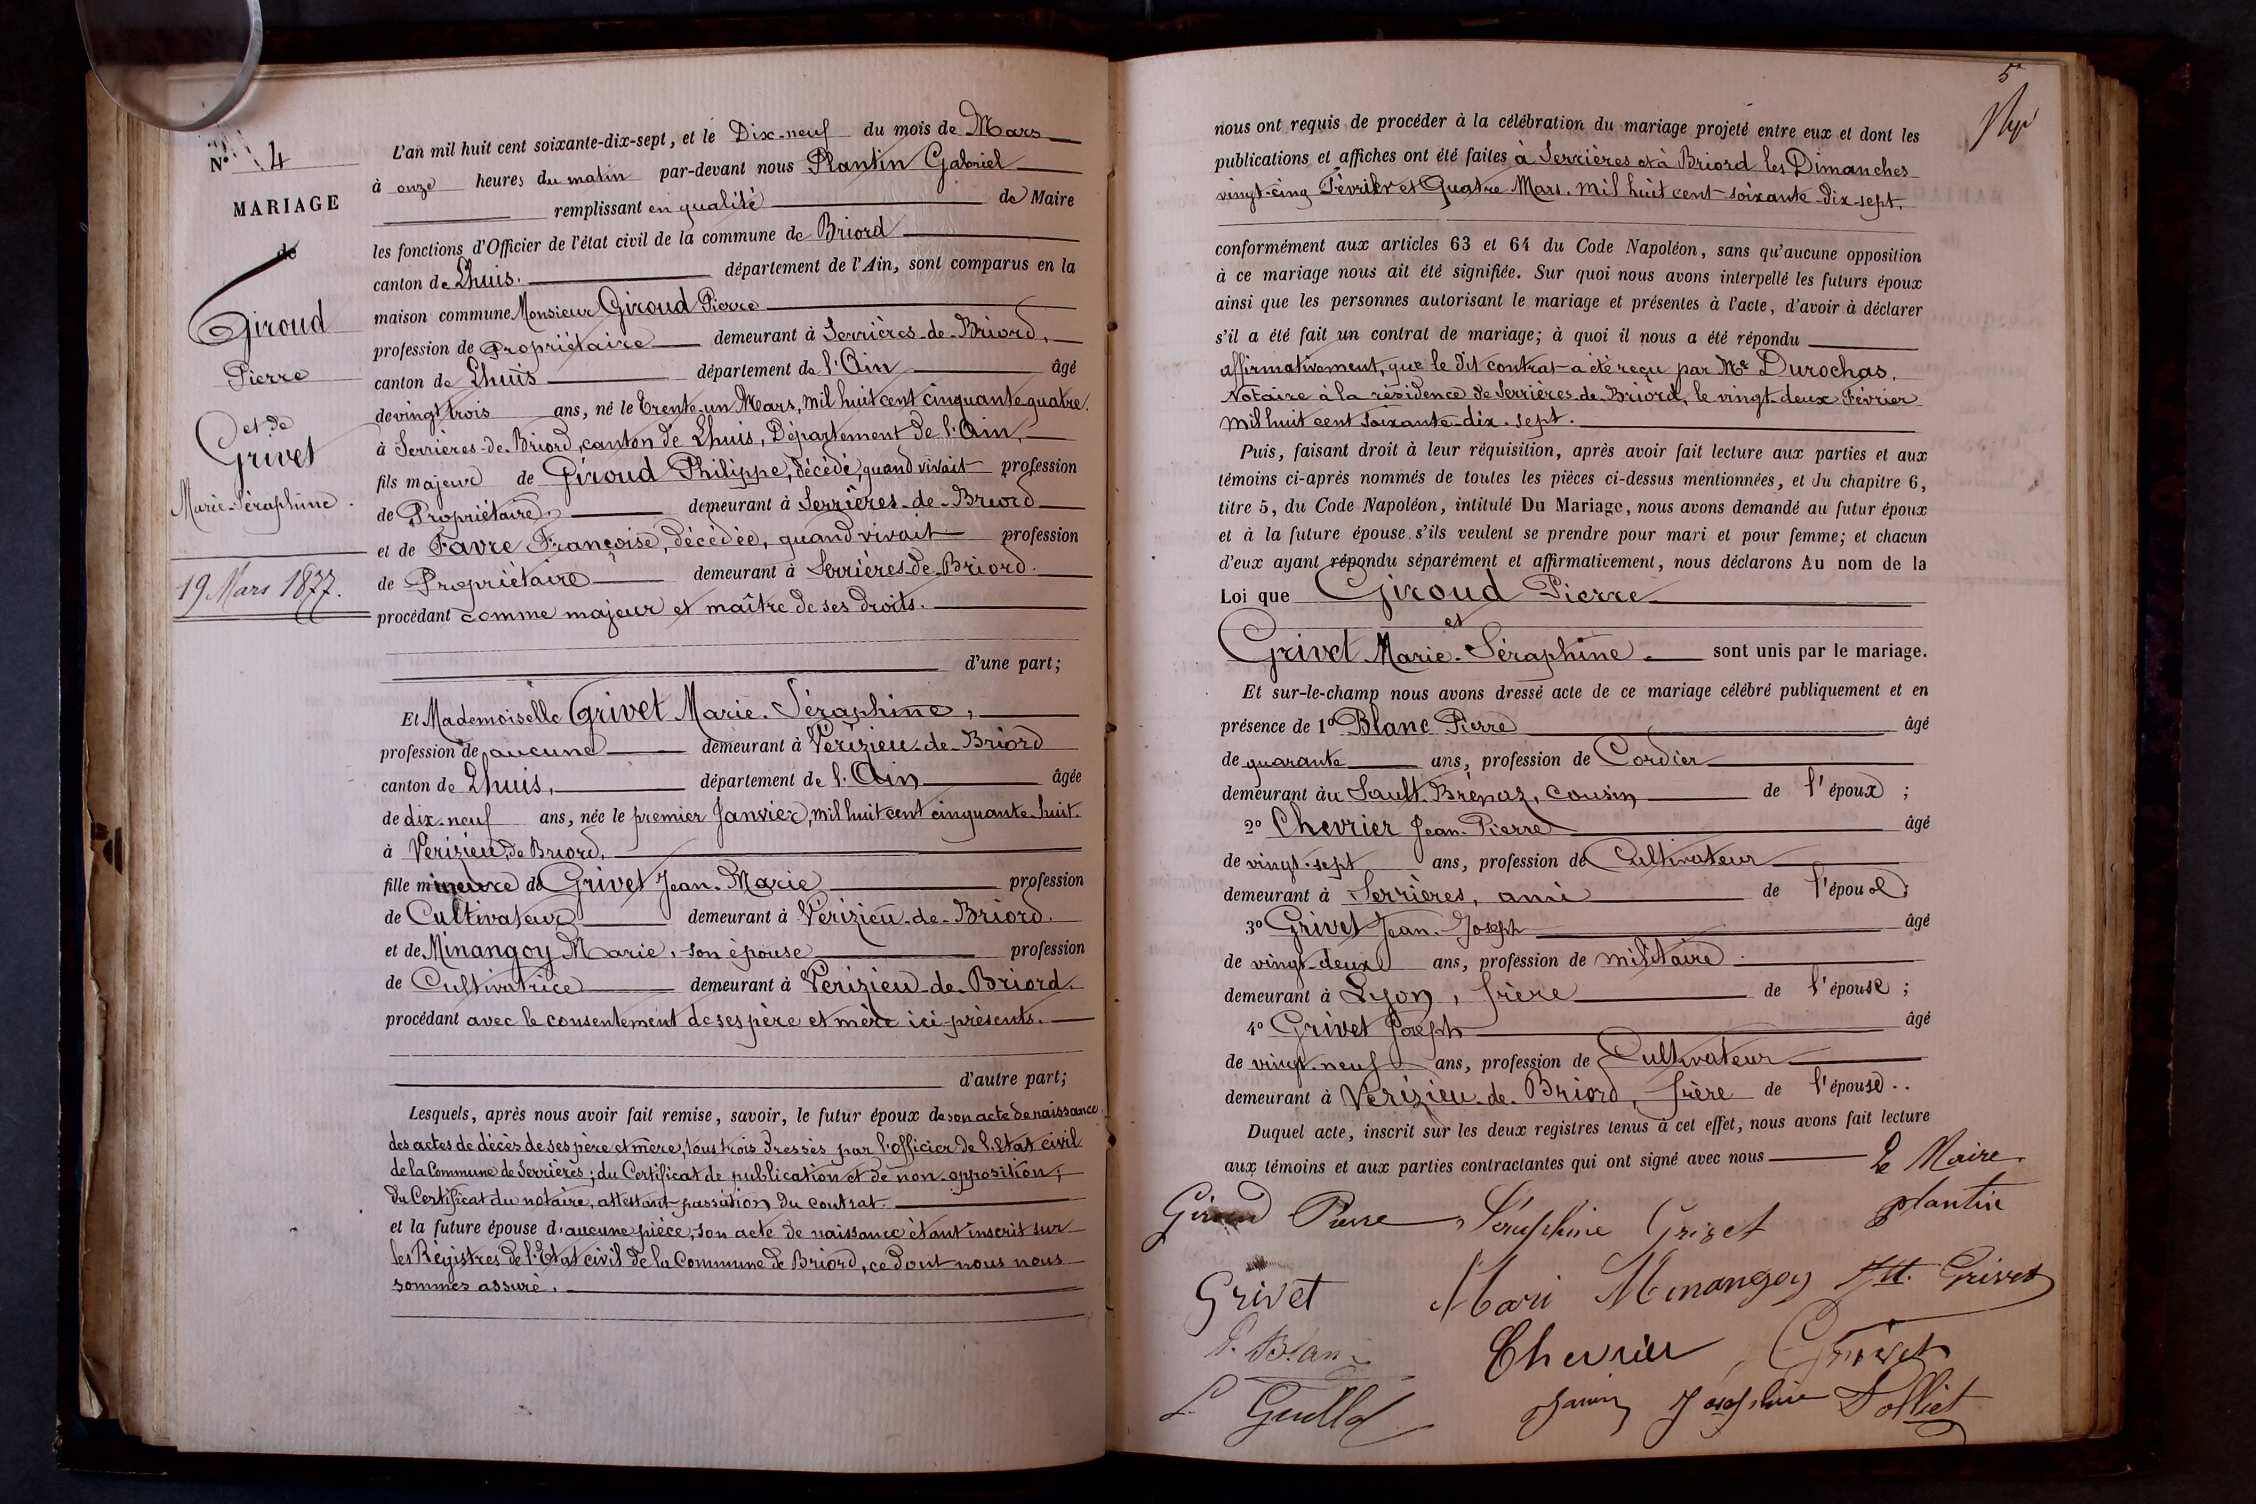 N° 4
MARIAGE
de
Giroud
Pierre
et de
Grivet
Marie-Séraphine.
19 Mars 1877.
L'an mil huit cent soixante-dix-sept, et le Dix-neuf du mois de Mars
à onze heures du matin par-devant nous Plantin Gabriel
remplissant en qualité de Maire
les fonctions d'Officier de l'état civil de la commune de Briord
canton de Lhuis. département de l'Ain, sont comparus en la
maison commune Monsieur Giroud Pierre
profession de Propriétaire demeurant à Serrières-de-Briord,
canton de Lhuis département de l'Ain âgé
de vingt trois ans, né le trente-un Mars, mil huit cent cinquante quatre.
à Serrières-de-Briord, canton de Lhuis, Département de l'Ain,
fils majeur de Giroud Philippe, décédé, quand vivait profession
de Propriétaire, demeurant à Serrières-de-Briord
et de Favre Françoise, décédée, quand vivait profession
de Propriétaire demeurant à Serrières-de-Briord.
procédant comme majeur et maître de ses droits.
d'une part;
Et Mademoiselle Grivet Marie-Séraphine,
profession de aucune demeurant à Verizieu-de-Briord
canton de Lhuis, département de l'Ain âgée
de dix-neuf ans, née le premier Janvier, mil huit cent cinquante-huit.
à Verizieu, de Briord,
fille mineure de Grivet Jean-Marie profession
de Cultivateur demeurant à Verizieu-de-Briord.
et de Minangoy Marie, son épouse profession
de Cultivatrice demeurant à Verizieu-de-Briord.
procédant avec le consentement de ses père et mère ici-présents.
d'autre part;
Lesquels, après nous avoir fait remise, savoir, le futur époux de son acte de naissance
des actes de décès de ses père et mère, tous trois dressés par l'officier de l'Etat civil
de la Commune de Serrières; du Certificat de publication et de non-opposition;
du Certificat du notaire, attestant passation du contrat.
et la future épouse d'aucune pièce, son acte de naissance étant inscrit sur
les Régistres de l'Etat civil de la Commune de Briord, ce dont nous nous
sommes assuré.
5
nous ont requis de procéder à la célébration du mariage projeté entre eux et dont les
publications et affiches ont été faites à Serrières et à Briord les Dimanches
vingt-cinq Février et Quatre Mars. mil huit cent soixante-dix-sept.
conformément aux articles 63 et 64 du Code Napoléon, sans qu'aucune opposition
à ce mariage nous ait été signifiée. Sur quoi nous avons interpellé les futurs époux
ainsi que les personnes autorisant le mariage et présentes à l'acte, d'avoir à déclarer
s'il a été fait un contrat de mariage; à quoi il nous a été répondu
affirmativement, que le dit contrat a été reçu par Me Durochas,
Notaire à la résidence de Serrières-de-Briord, le vingt-deux Février
mil huit cent soixante-dix-sept.
Puis, faisant droit à leur réquisition, après avoir fait lecture aux parties et aux
témoins ci-après nommés de toutes les pièces ci-dessus mentionnées, et du chapitre 6,
titre 5, du Code Napoléon, intitulé Du Mariage, nous avons demandé au futur époux
et à la future épouse s'ils veulent se prendre pour mari et pour femme; et chacun
d'eux ayant répondu séparément et affirmativement, nous déclarons Au nom de la
Loi que Giroud Pierre
et
Grivet Marie-Séraphine sont unis par le mariage.
Et sur-le-champ nous avons dressé acte de ce mariage célébré publiquement et en
présence de 1° Blanc Pierre âgé
de quarante ans, profession de Cordier
demeurant au Sault-Brénaz, cousin de l'époux;
2° Chevrier Jean-Pierre âgé
de vingt-sept ans, profession de Cultivateur
demeurant à Serrières, ami de l'épouse;
3° Grivet Jean-Joseph âgé
de vingt-deux ans, profession de militaire.
demeurant à Lyon, frère de l'épouse;
4° Grivet Joseph âgé
de vingt-neuf ans, profession de Cultivateur
demeurant à Verizieu-de-Briord, frère de l'épouse..
Duquel acte, inscrit sur les deux registres tenus à cet effet, nous avons fait lecture
aux témoins et aux parties contractantes qui ont signé avec nous Le Maire.
Giroud Pierre Séraphine Grivet Plantin
Grivet Mari Minangoy Grivet
P. Blanc Chevrier Grivet
Josephine Dolliet